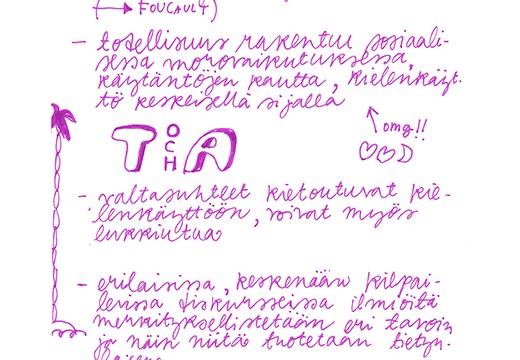 → FOUCAULT)
- todellisuus rakentuu sosiaali-
sessa vuorovaikutuksessa,
käytäntöjen kautta, kielenkäyt-
tö keskeisellä sijalla
omg!!
T OCH A
- valtasuhteet kietoutuvat kie-
lenkäyttöön, voivat myös
lukkiutua
- erilaisissa, keskenään kilpai-
levissa diskursseissa ilmiöitä
merkityksellistetään eri tavoin
ja näin niitä tuotetaan tietyn-